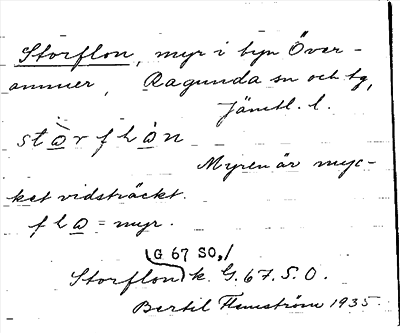 Storflon, myr i byn Över-
ammer, Ragunda sn och tg,
Jämtl. l.
stɑ̀rflɑ̀n
Myren är myc-
ket vidsträckt.
flɑ = myr.
G 67 SO,/
Storflon k. G. 67. S. O.
Bertil Flemström 1935.